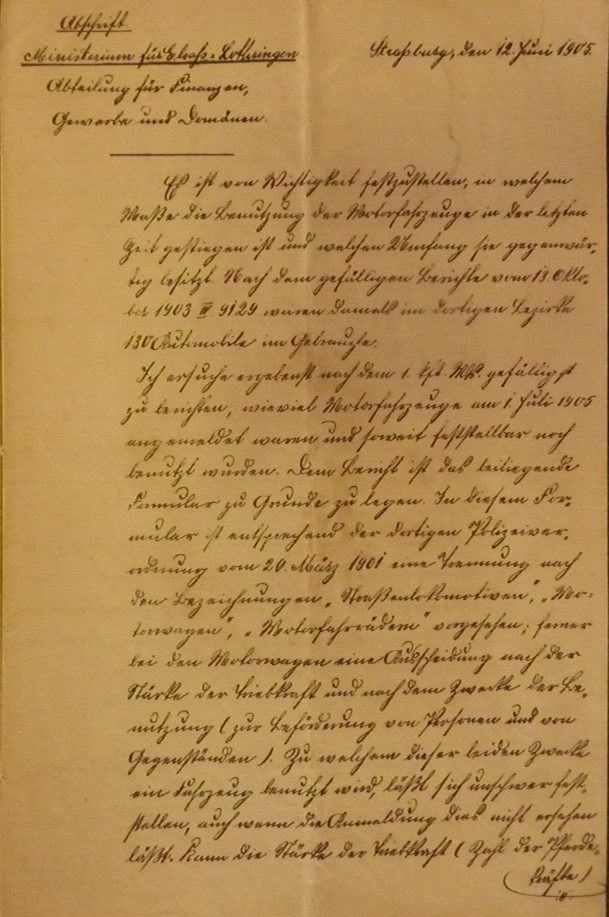 Abschrift.
Ministerium für Elsaß-Lothringen
Straßburg, den 12. Juni 1905.
Abteilung für Finanzen,
Gewerbe und Domänen.
Es ist von Wichtigkeit festzustellen, in welchem
Maße die Benutzung der Motorfahrzeuge in der letzten
Zeit gestiegen ist und welchen Umfang sie gegenwär-
tig besitzt. Nach dem gefälligen Berichte vom 13. Okto-
ber 1903 IV. 9129 waren damals im dortigen Bezirke
130 Automobile im Gebrauche.
Ich ersuche ergebenst nach dem 1. kft. Mts. gefälligst
zu berichten, wieviel Motorfahrzeuge am 1. Juli 1905
angemeldet waren und soweit feststellbar noch
benutzt wurden. Dem Bericht ist das beiliegende
Formular zu Grunde zu legen. In diesem For-
mular ist entsprechend der dortigen Polizeiver-
ordnung vom 20. März 1901 eine Trennung nach
den Bezeichnungen „Straßenlokomotiven", „Mo-
torwagen", „Motorfahrrädern" vorgesehen; ferner
bei den Motorwagen eine Ausscheidung nach der
Stärke der Triebkraft und nach dem Zwecke der Be-
nutzung (zur Beförderung von Personen und von
Gegenständen). Zu welchem dieser beiden Zwecke
ein Fahrzeug benutzt wird, läßt sich unschwer fest-
stellen, auch wenn die Anmeldung dies nicht ersehen
läßt. Kann die Stärke der Triebkraft (Zahl der Pferde-
kräfte)